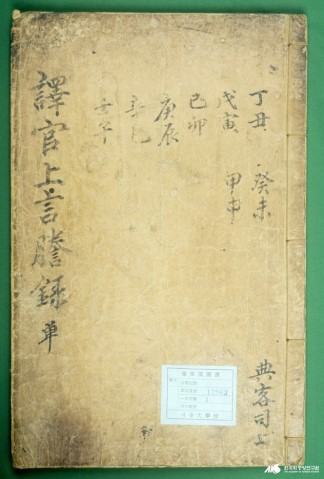 丁丑 癸未
戊寅 甲申
己卯
庚辰
辛巳
壬午
典客司上
譯官上言謄錄 單
서울大學校
한국학중앙연구원